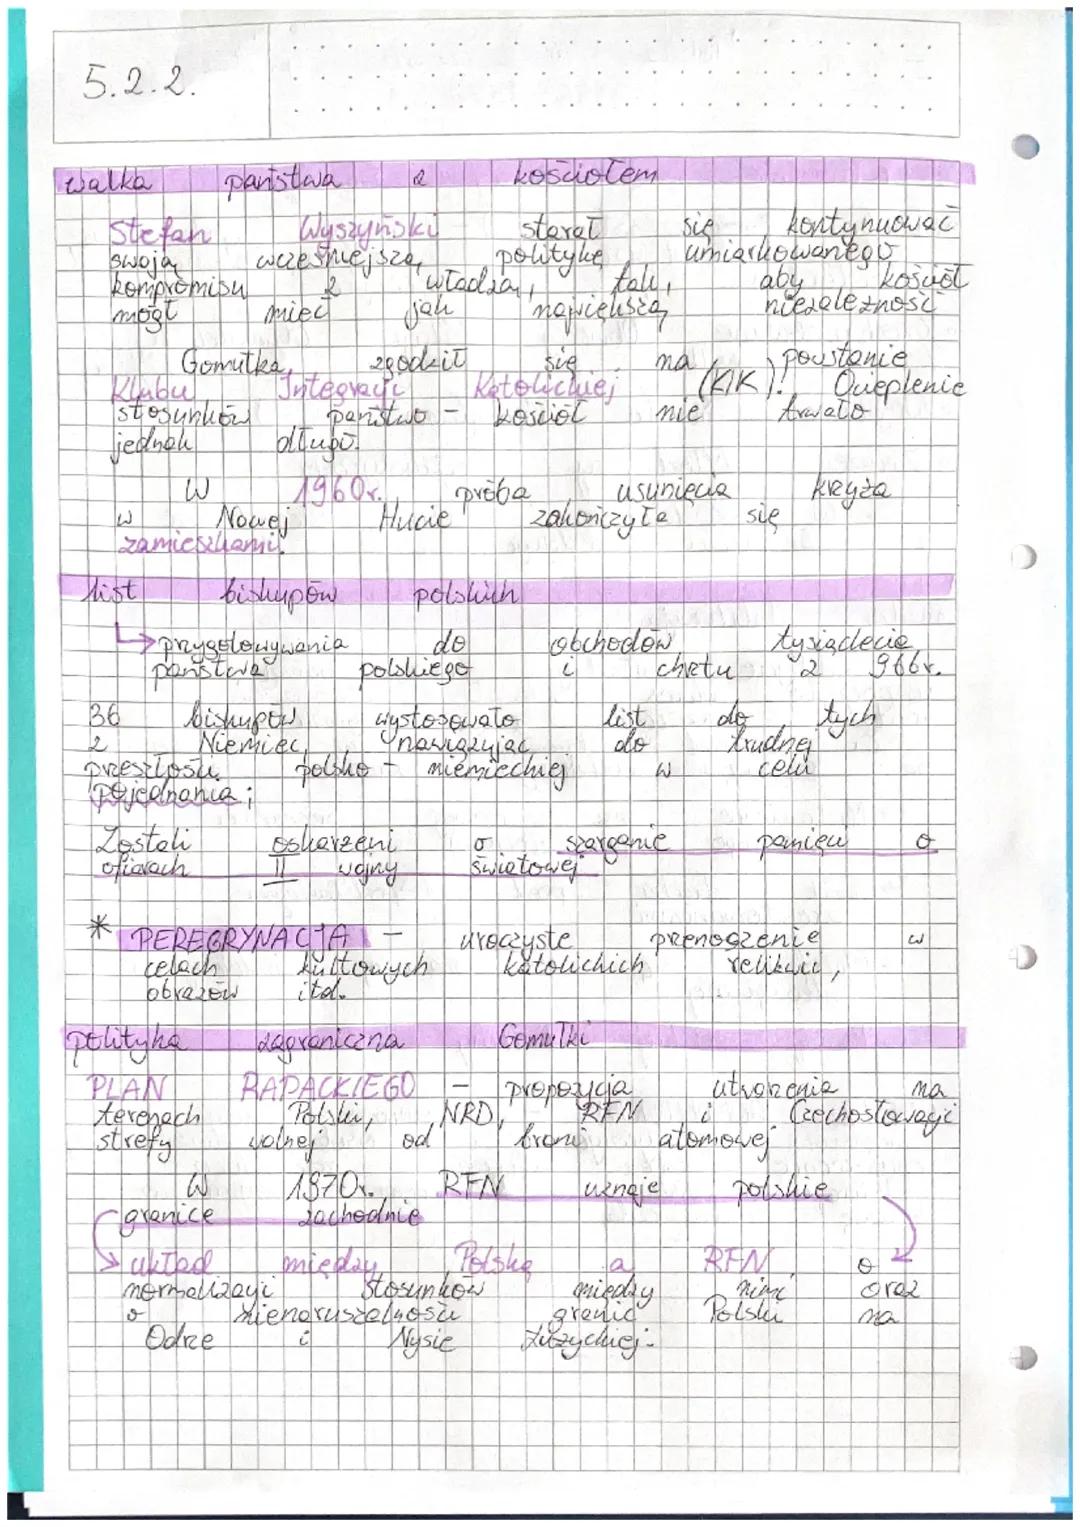 5.2.2.
walka państwa z kościołem
Stefan Wyszyński starał się kontynuować
swoją wcześniejszą politykę umiarkowanego
kompromisu z władzą, tak, aby kościół
mógł mieć jak największą niezależność
Gomułka zgodził się na powstanie
Klubu Integracji Katolickiej (KIK)! Ocieplenie
stosunków państwo - kościół nie trwało
jednak długo.
W 1960r. próba usunięcia krzyża
w Nowej Hucie zakończyła się
zamieszkami.
list biskupów polskich
↳ przygotowywania do obchodów tysiąclecia
państwa polskiego i chrztu z 966r.
36 biskupów wystosowało list do tych
z Niemiec, nawiązując do trudnej
przeszłości polsko - niemieckiej w celu
pojednania;
Zostali oskarżeni o szarganie pamięci o
ofiarach II wojny światowej
* PEREGRYNACJA - uroczyste przenoszenie w
celach kultowych katolickich relikwii,
obrazów itd.
polityka zagraniczna Gomułki
PLAN RAPACKIEGO - propozycja utworzenia na
terenach Polski, NRD, RFN i Czechosłowacji
strefy wolnej od broni atomowej
W 1970r. RFN uznaje polskie
granice zachodnie
układ między Polską a RFN o
normalizacji stosunków między nimi oraz
o nienaruszalności granic Polski na
Odrze i Nysie Łużyckiej.